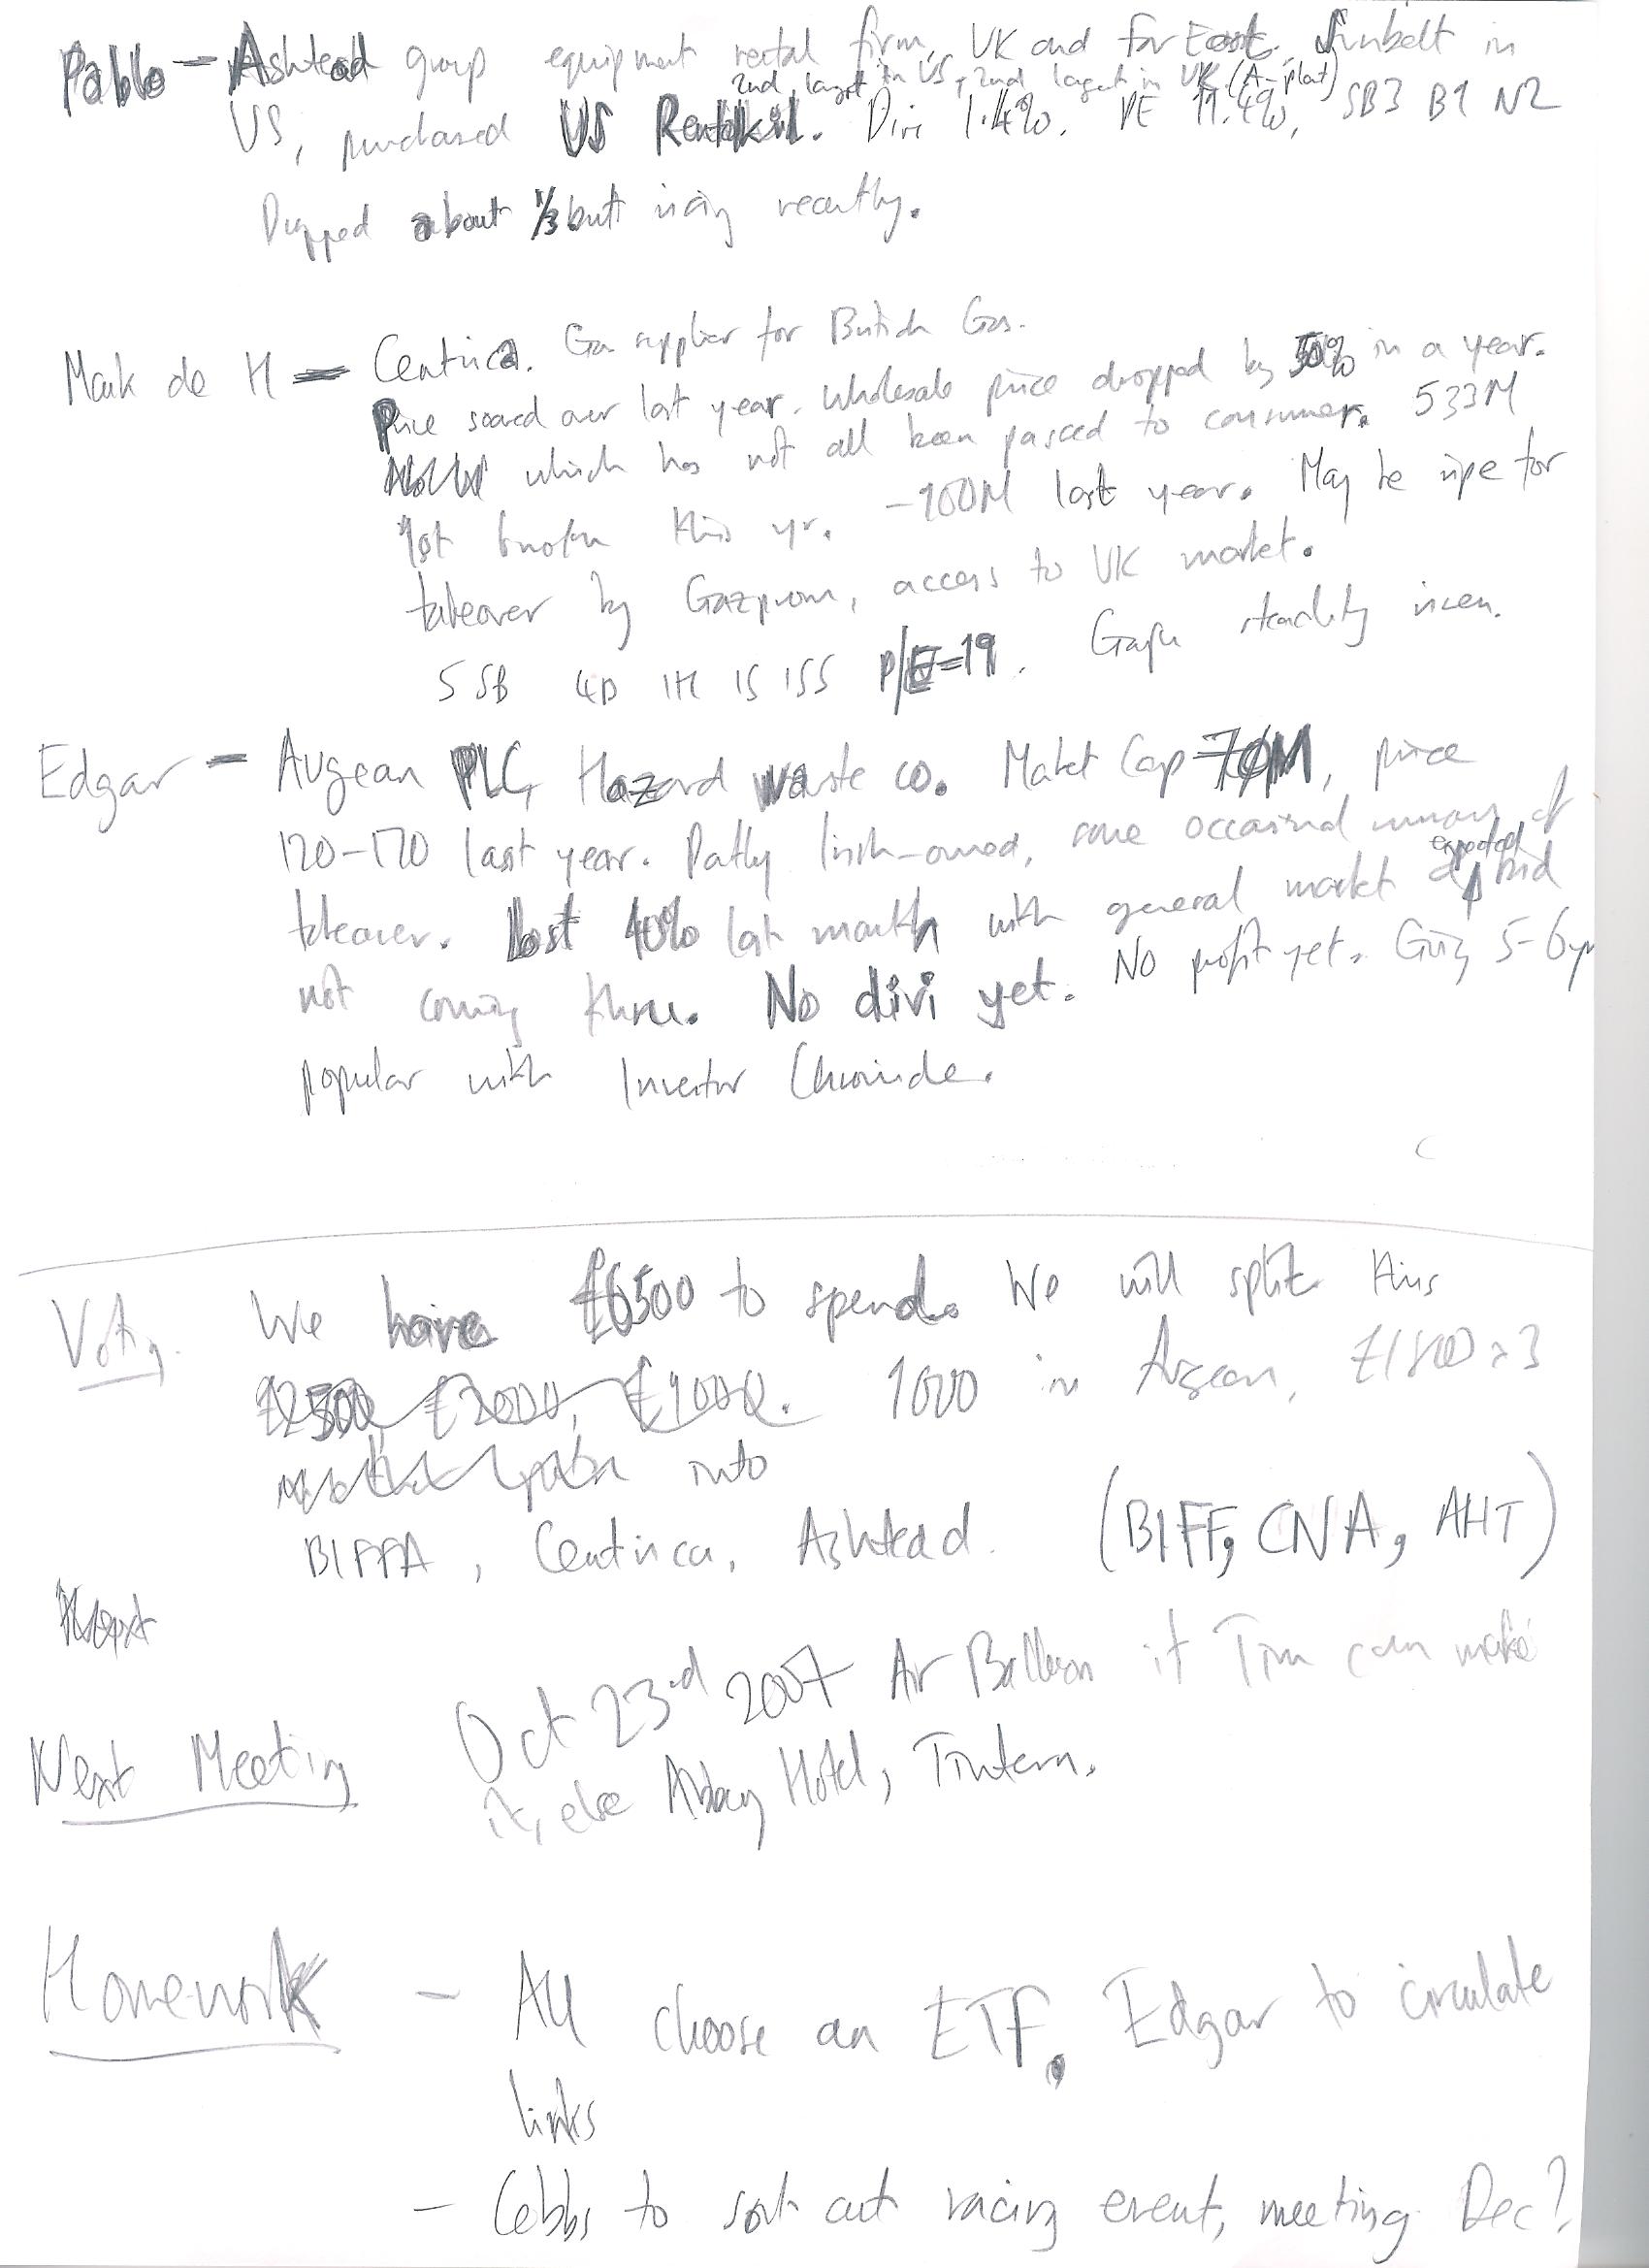 Pablo - Ashtead group equipment rental firm, UK and far East. Sunbelt in
2nd largest in US, 2nd largest in UK (A-plant)
US, purchased US Rentokil. Divi 1.4%. PE 11.4%, SB3 B1 N2
Dropped about 1/3 but rising recently.
Mark de H - Centrica. Gas supplier for British Gas.
Price soared over last year. Wholesale price dropped by 50% in a year.
which has not all been passed to consumer. 533M
1st this yr. -100M last year. May be ripe for
takeover by Gazprom, access to UK market.
5 SB 4B 1H 1S 1SS P/E=19. Graph steadily
Edgar - Augean PLC, Hazard waste co. Market Cap 70M, price
120-170 last year. Partly Irish-owned, some occasional rumours of
takeover. Lost 40% last month with general market & expected bid
not coming thru. No divi yet. No profit yet. Going 5-6yr
popular with Investor Chronicle.
Voting. We have £6500 to spend. We will split this
£2500, £2000, £1000. 1000 in Augean, £1800 x 3
into
BIFFA, Centrica, Ashtead. (BIFF, CNA, AHT)
Next
Next Meeting Oct 23rd 2007 Air Balloon if Tim can make
it, else Abbey Hotel, Tintern.
Homework - All choose an ETF. Edgar to circulate
links
- Cobbs to sort out racing event, meeting Dec?